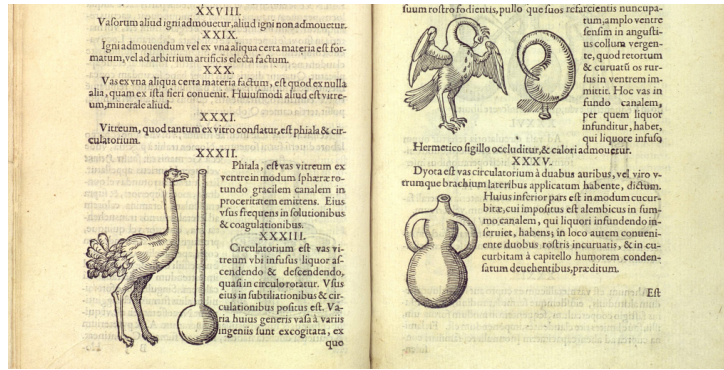 XXVIII.
Vasorum aliud igni admouetur, aliud igni non admouetur.
XXIX.
Igni admouendum vel ex vna aliqua certa materia est for-
matum, vel ad arbitrium artificis electa factum.
XXX.
Vas ex vna aliqua certa materia factum, est quod ex nulla
alia, quam ex ista fieri conuenit. Huiusmodi aliud est vitre-
um, minerale aliud.
XXXI.
Vitreum, quod tantum ex vitro conflatur, est phiala & cir-
culatorium.
XXXII.
Phiala, est vas vitreum ex
ventre in modum sphæræ ro-
tundo gracilem canalem in
proceritatem emittens. Eius
vsus frequens in solutionibus
& coagulationibus.
XXXIII.
Circulatorium est vas vi-
treum vbi infusus liquor as-
cendendo & descendendo,
quasi in circulo rotatur. Vsus
eius in subtiliationibus & cir-
culationibus positus est. Va-
ria huius generis vasa à variis
ingeniis sunt excogitata, ex
quo
suum rostro fodientis, pullo que suos refarcientis nuncupa-
tum, amplo ventre
sensim in angusti-
us collum vergen-
te, quod retortum
& curuatũ os rur-
sus in ventrem im-
mittit. Hoc vas in
fundo canalem,
per quem liquor
infunditur, habet,
qui liquore infuso
Hermetico sigillo occluditur, & calori admouetur.
XXXV.
Dyota est vas circulatorium à duabus auribus, vel viro v-
trumque brachium lateribus applicatum habente, dictum.
Huius inferior pars est in modum cucur-
bitæ, cui impositus est alembicus in sum-
mo canalem, qui liquori infundendo in-
seruiet, habens; in loco autem conueni-
ente duobus rostris incuruatis, & in cu-
curbitam à capitello humorem conden-
satum deuehentibus, præditum.
Est